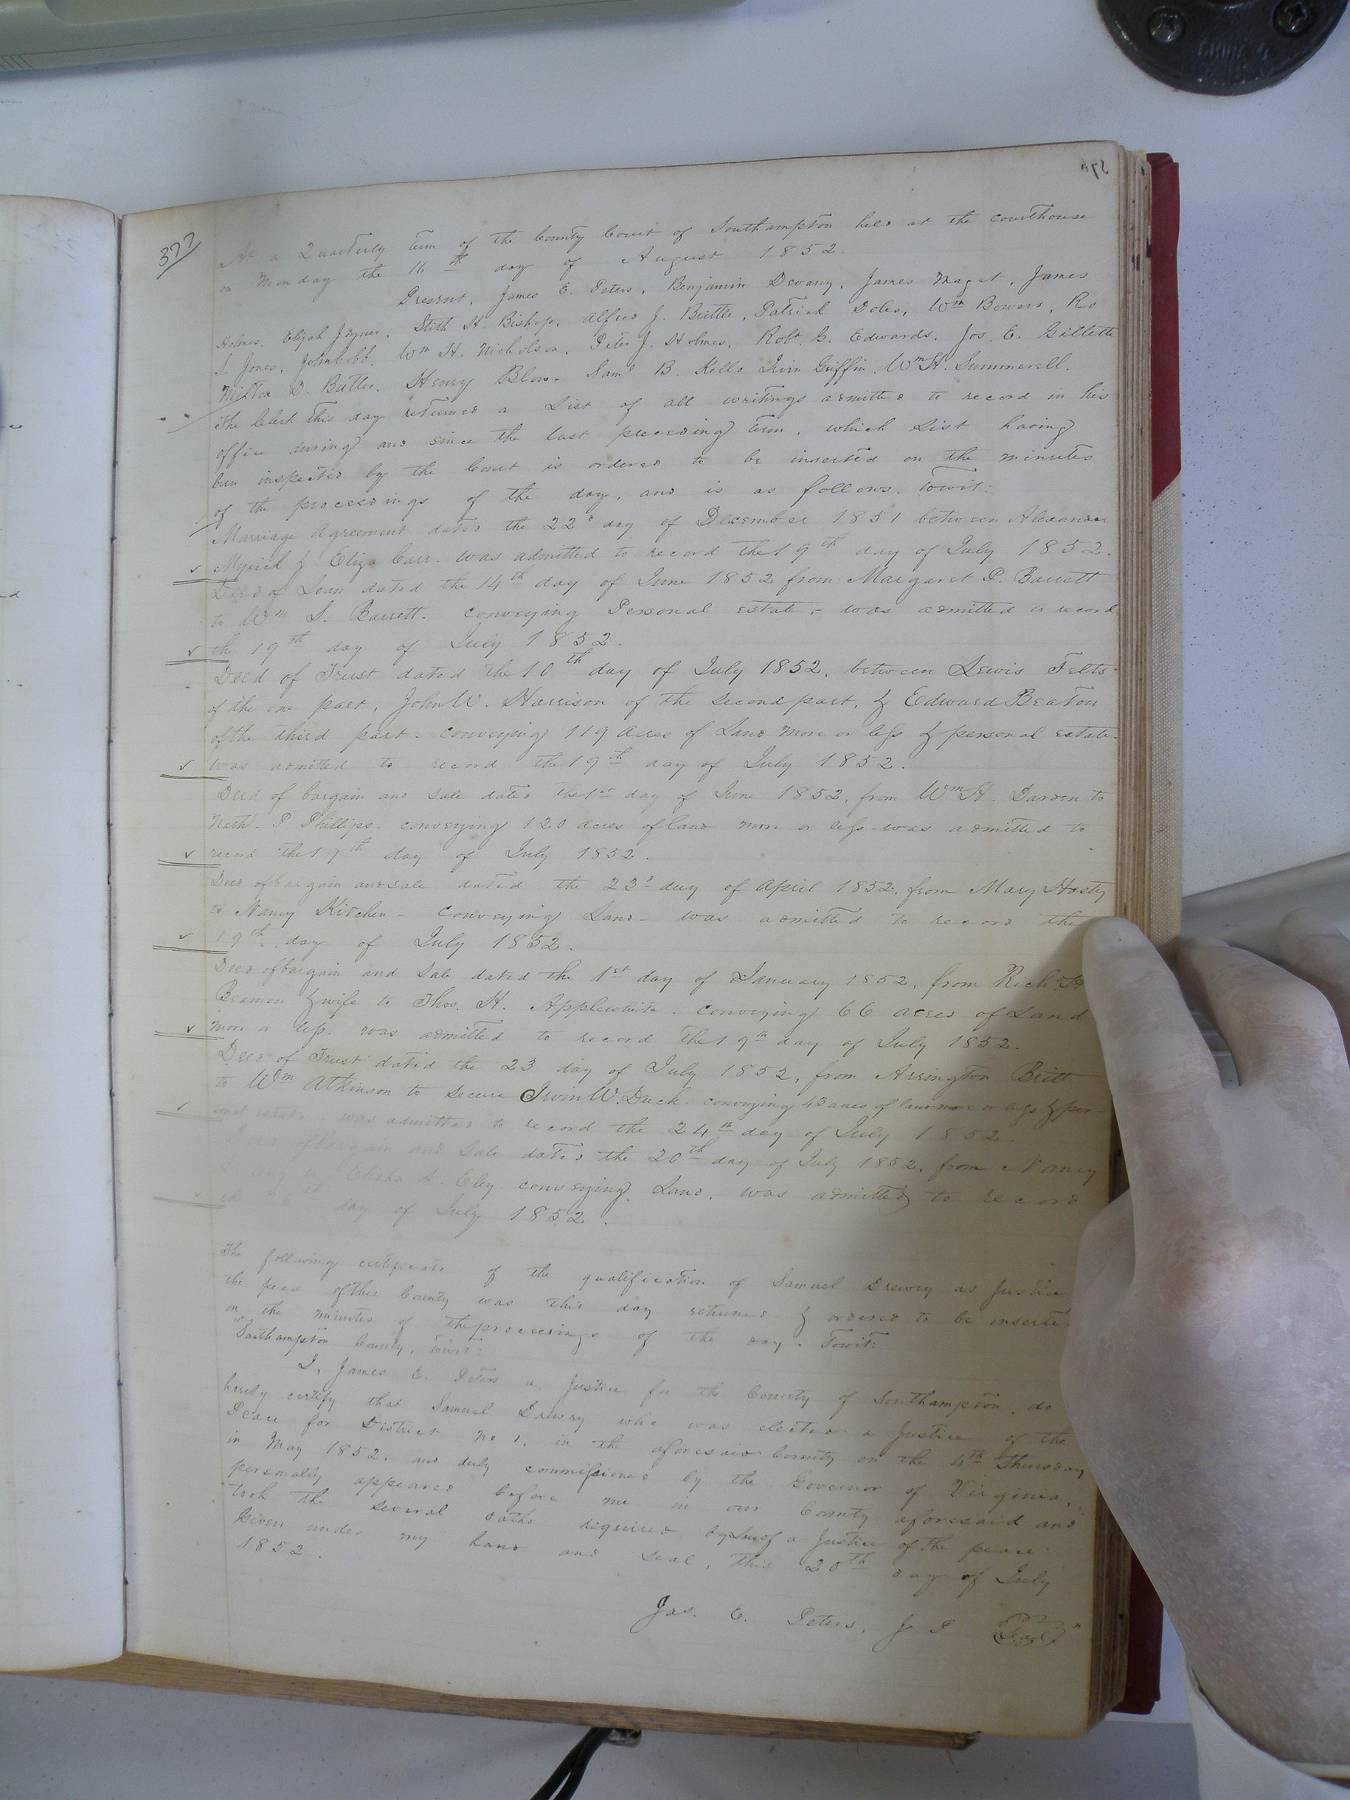 377
At a Quarterly term of the County Court of Southampton held at the courthouse
on Monday the 16th day of August 1852.
Present, James E. Peters, Benjamin Devany, James Maget, James
Holmes, Elijah Joyner, Stith H. Bishop, Alfred J. Britt, Patrick Doles, Wm Bowers, Ro
S. Jones, John Cobb, Wm H. Nicholson, Peter J. Holmes, Robt. G. Edwards, Jos. E. Gillette
Milton D. Butler, Henry Blow, Saml B. Kello Irvin Griffin Wm H. Summerell.
The Clerk this day returned a List of all writings admitted to record in his
office during and since the last preceding term, which List having
been inspected by the Court is ordered to be inserted on the minutes
of the proceedings of the day, and is as follows. towit:
Marriage Agreement dated the 22d day of December 1851 between Alexander
Myrick & Eliza Carr. was admitted to record the 19th day of July 1852.
Deed of Loan dated the 14th day of June 1852 from Margaret P. Barrett
to Wm S. Barrett. conveying Personal estate - was admitted to record
the 19th day of July 1852.
Deed of Trust dated the 10th day of July 1852, between Lewis Felts
of the one part, John W. Harrison of the second part, & Edward Beaton
of the third part. conveying 119 acres of Land more or less & personal estate
was admitted to record the 19th day of July 1852.
Deed of bargain and sale dated the 1st day of June 1852, from Wm H. Darden to
Nath. P. Phillips. conveying 120 acres of land more or less was admitted to
record the 19th day of July 1852.
Deed of bargain and sale dated the 23d day of April 1852, from Mary Hasty
to Nancy Kitchen - conveying Land - was admitted to record the
19th day of July 1852.
Deed of bargain and Sale dated the 1st day of January 1852, from Richd H
Beamon & wife to Thos. H. Applewhite. conveying 66 acres of Land
more or less. was admitted to record the 19th day of July 1852.
Deed of Trust dated the 23 day of July 1852, from Arrington Britt
to Wm Atkinson to secure Irvin W. Duck. conveying 43 acres of land more or less & per-
sonal estate. was admitted to record the 24th day of July 1852.
Deed of Bargain and Sale dated the 20th day of July 1852, from Nancy
to Elisha L. Eley conveying Land, was admitted to record
the 26th day of July 1852.
The following certificate of the qualification of Samuel Drewry as Justice
the peace of this County was this day returned & ordered to be inserted
on the minutes of the proceedings of the day. Towit:
Southampton County, towit:
I, James E. Peters a Justice for the County of Southampton, do
hereby certify that Samuel Drewry who was elected a Justice of the
Peace for District No 1, in the aforesaid County on the 4th Thursday
in May 1852, and duly commissioned by the Governor of Virginia,
personally appeared before me in our County aforesaid and
took the several oaths required by law of a Justice of the peace.
Given under my hand and seal, this 20th day of July
1852.
Jas. E. Peters, J P Seal